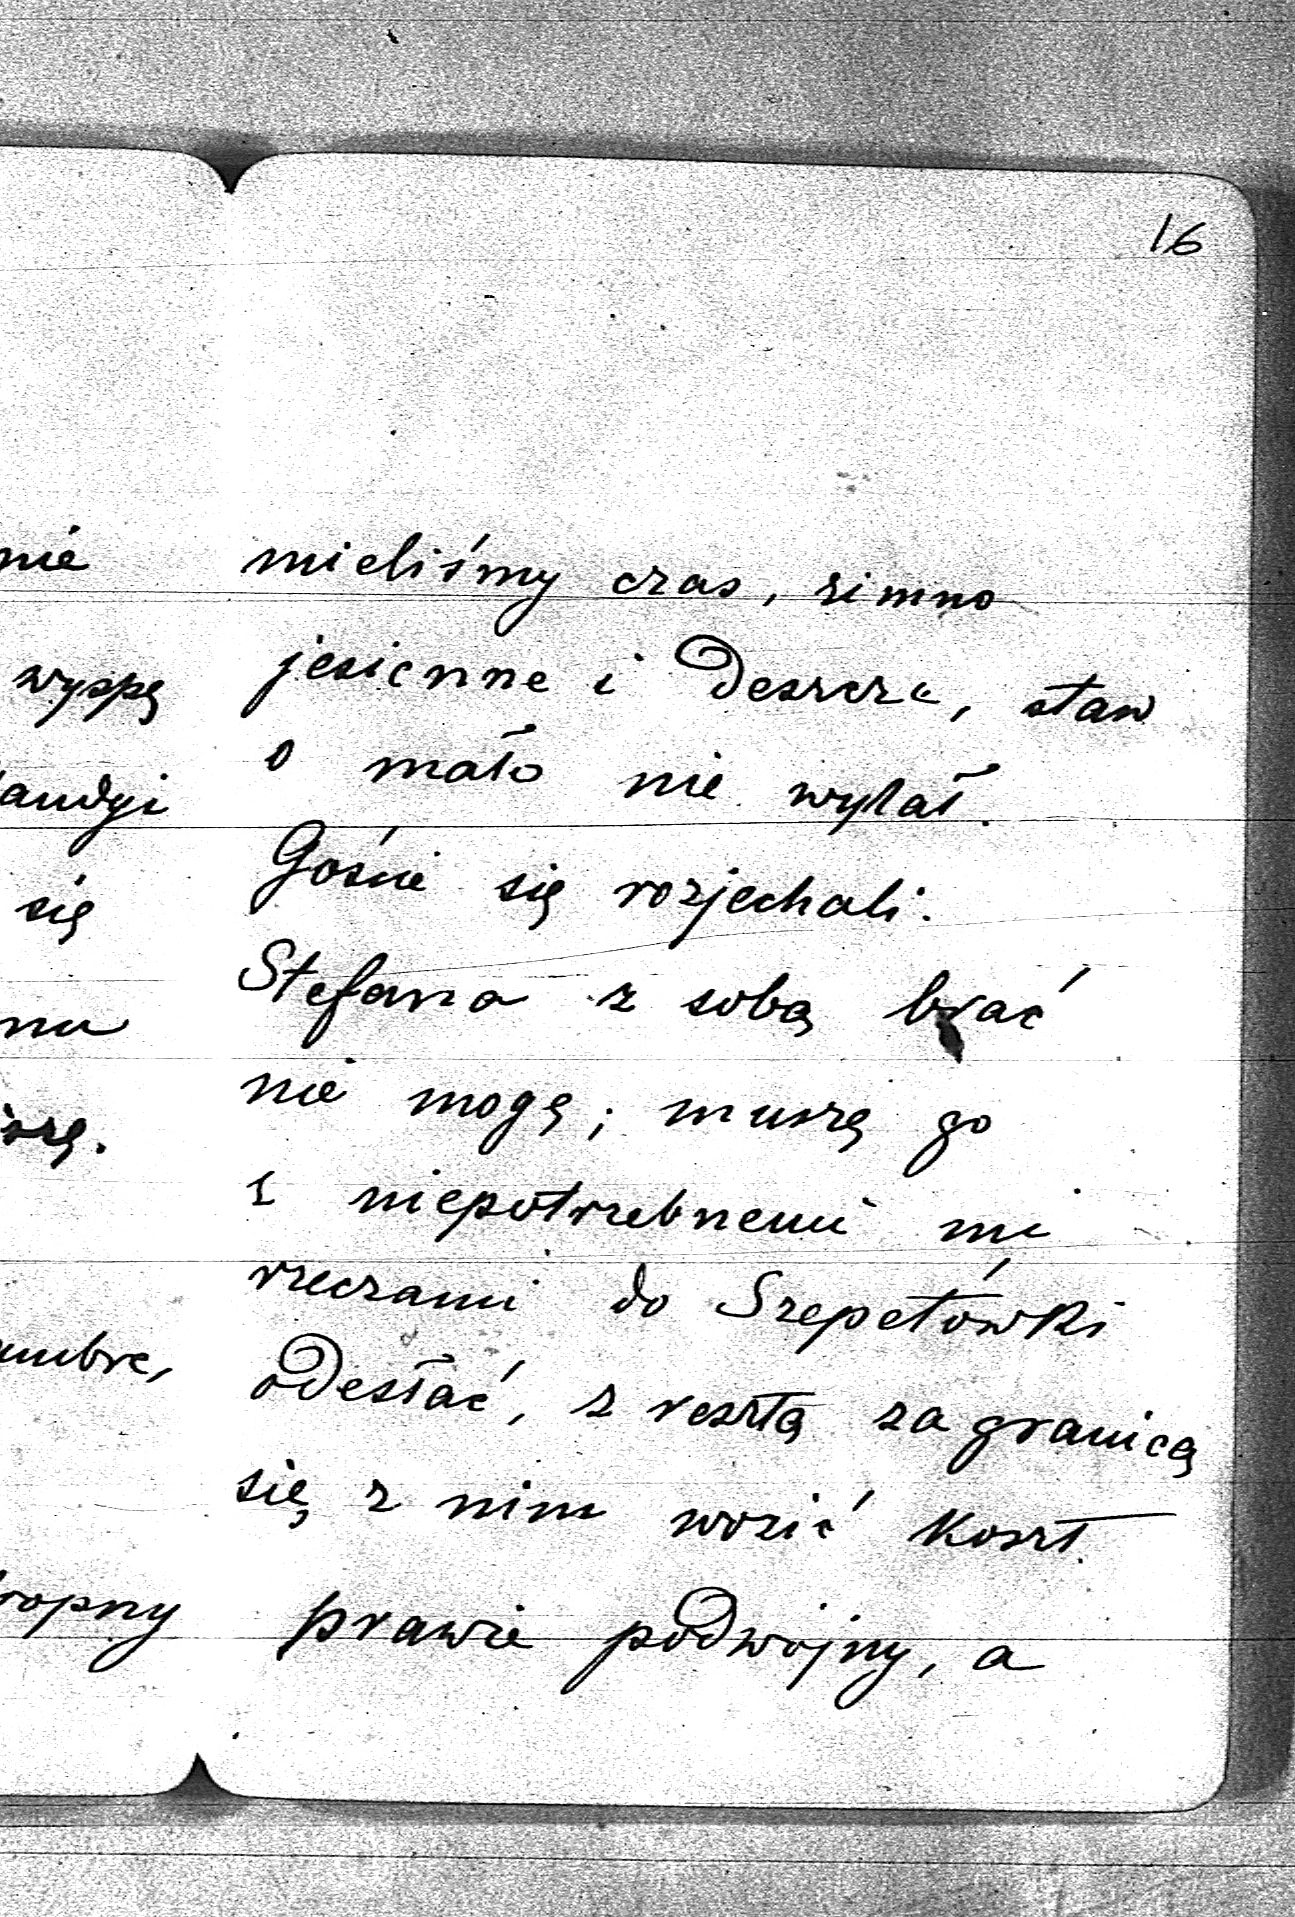 16
nie
wyspę
się
mieliśmy czas, zimno
jesienne i deszcze, staw
o mało nie wylał.
Goście się rozjechali.
Stefana z sobą brać
nie mogę; muszę go
z niepotrzebnemi mi
rzeczami do Szepetówki
odesłać, z resztą za granicą
się z nim wozić koszt
prawie podwójny, a